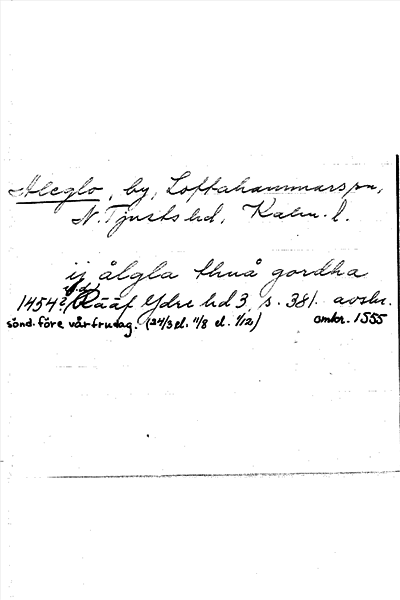 Aleglo, by, Loftahammars sn,
N. Tjusts hd, Kalm. l.
ij ålgla thuå gordha
1454? Rääf Ydre hd 3, s. 381. avskr.
sönd. före vårfrudag. (24/3 el. 11/8 el. 1/12) omkr. 1555